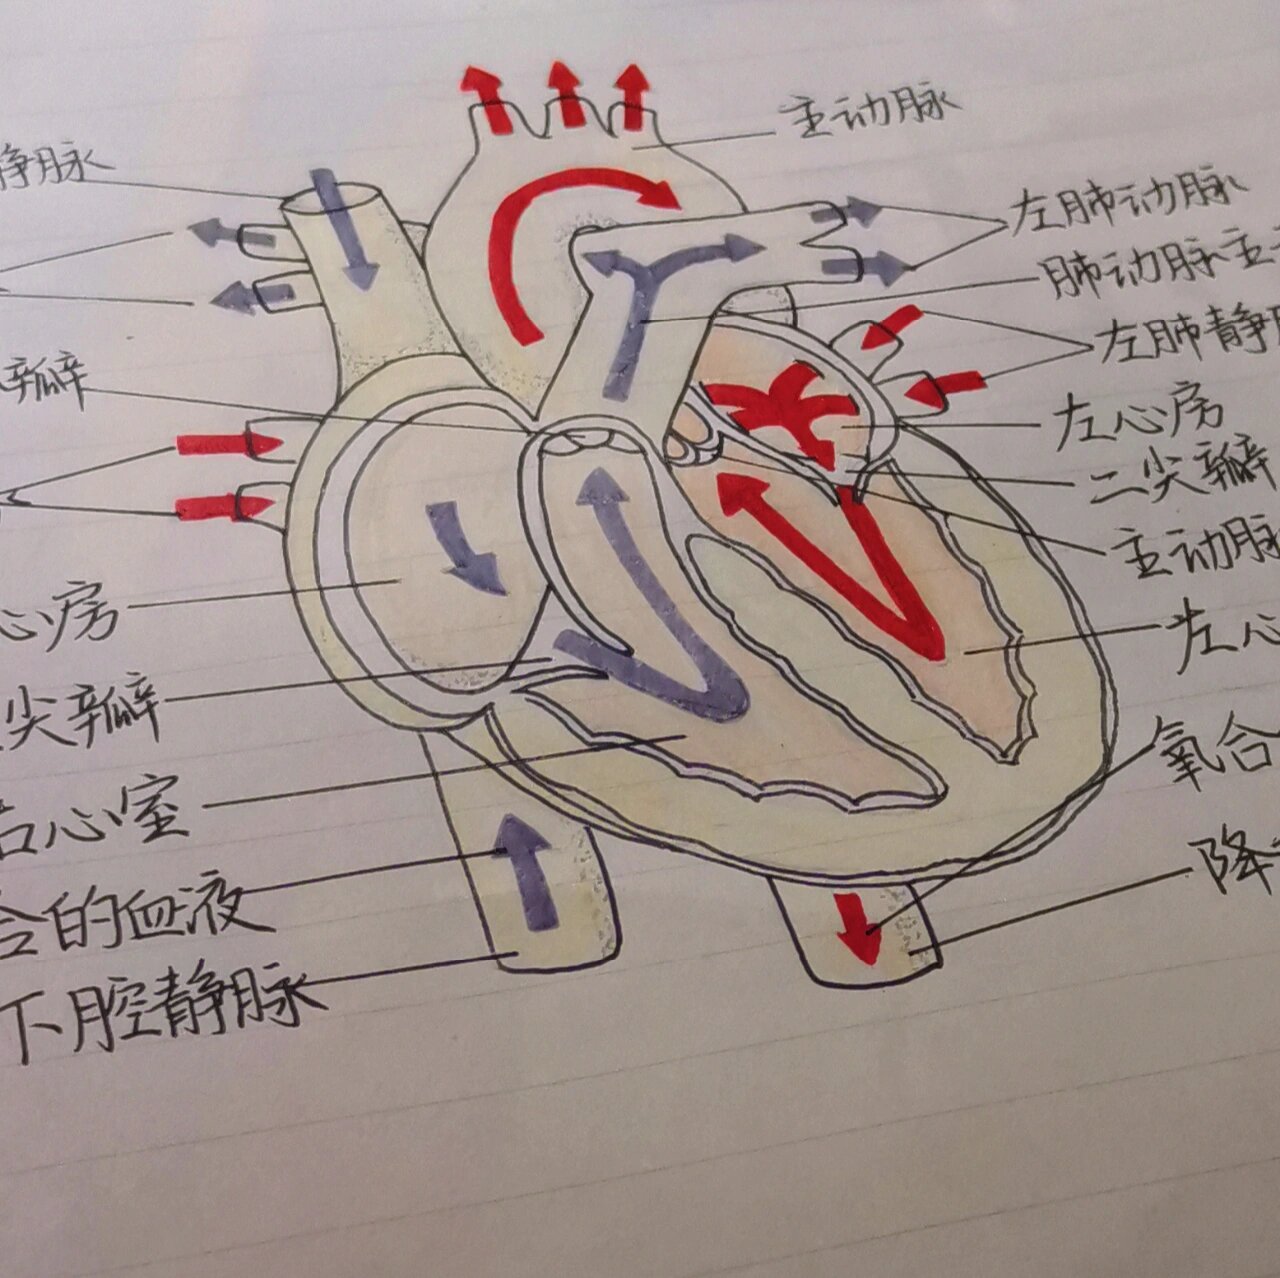 主动脉
静脉
左肺动脉
肺动脉主
左肺静
瓣
左心房
二尖瓣
主动脉
心房
左心
尖瓣
氧合
右心室
降
合的血液
下腔静脉